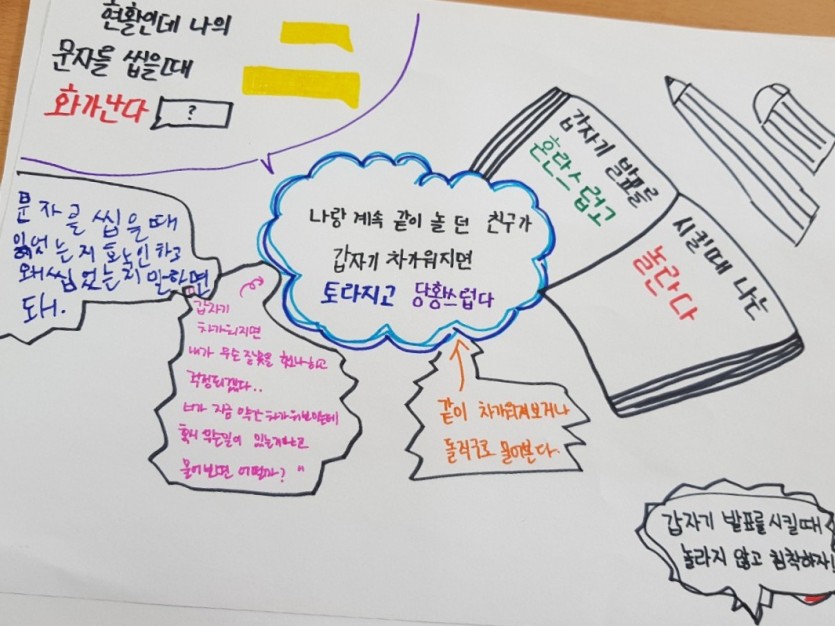 현활인데 나의
문자를 씹을때
화가난다 ?
문자를 씹을때
읽었는지 확인하고
왜 씹었는지 말하면
돼.
나랑 계속 같이 놀던 친구가
갑자기 차가워지면
토라지고 당황쓰럽다
갑자기 발표를
혼란스럽고
시킬때 나는
놀란다
갑자기
차가워지면
내가 무슨 잘못을 했나하고
걱정되겠다..
너가 지금 약간 차가워보이는데
혹시 무슨일이 있는거냐고
물어보면 어떨까? "
같이 차가워져보거나
돌직구로 물어본다..
갑자기 발표를 시킬때
놀라지 않고 침착하자!